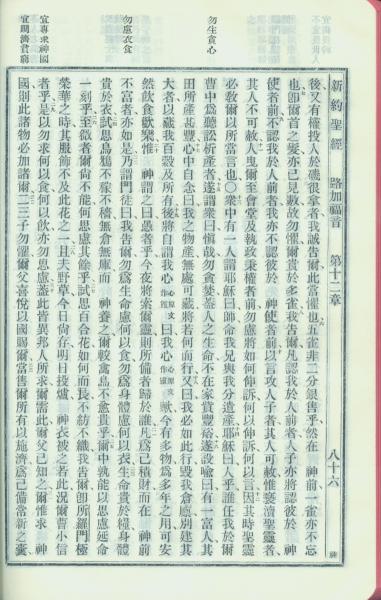 新約聖經 路加福音 第十二章 八十六
後又有權投入於磯很拿者我誠告爾此當懼也五雀非二分銀售乎然在 神前一雀亦不忘
也卽爾首之髮亦已見數故勿懼爾貴於多雀我告爾凡認我於人前者人子亦將認彼於 神
使者前不認我於人前者我亦不認彼於 神使者前以言攻人子者其人可赦惟褻瀆聖靈者
其人不可赦人曳爾至會堂及執政秉權者前勿慮將如何伸訴何以伸訴何以言因其時聖靈
必敎爾以所當言也〇衆中有一人謂耶穌曰師命我兄與我分遺產耶穌曰人乎誰任我於爾
勿生貪心
曹中爲聽訟析產者遂謂衆曰愼哉勿貪婪蓋人之生命不在家貲豐裕遂設喻曰有一富人其
田所產甚豐心中自念曰我之物產無處可藏將若何而行又曰我必如此行毀我倉廒別建其
大者以藏我百穀及所有後將自謂我心心原文作靈曰我心心原文作靈歟今有多物爲多年之用可安
然飲食歡樂惟 神謂之曰愚者乎今夜將索爾靈則所備者歸於誰凡爲己積財而在 神前
勿慮衣食
不富者亦如是乃謂門徒曰我告爾勿爲生命慮何以食勿爲身體慮何以衣生命貴於糧身體
貴於衣試思烏鴉不稼不穡無倉無庫而 神養之爾較禽鳥不愈貴乎爾中孰能以思慮延命
一刻乎至微者爾尚不能何思慮其餘乎試思百合花如何而長不紡不織我告爾卽所羅門極
榮華之時其服飾不及此花之一且夫野草今日尚存明日投爐 神衣被之若此況爾曹小信
宜專求神國
者乎是以勿求何以食何以飲亦勿思慮蓋此皆異邦人所求爾需此爾父已知之爾惟求 神
宜賙濟貧窮
國則此諸物必加諸爾二三子勿懼爾父喜悅以國賜爾當售爾所有以施濟爲己備常新之囊